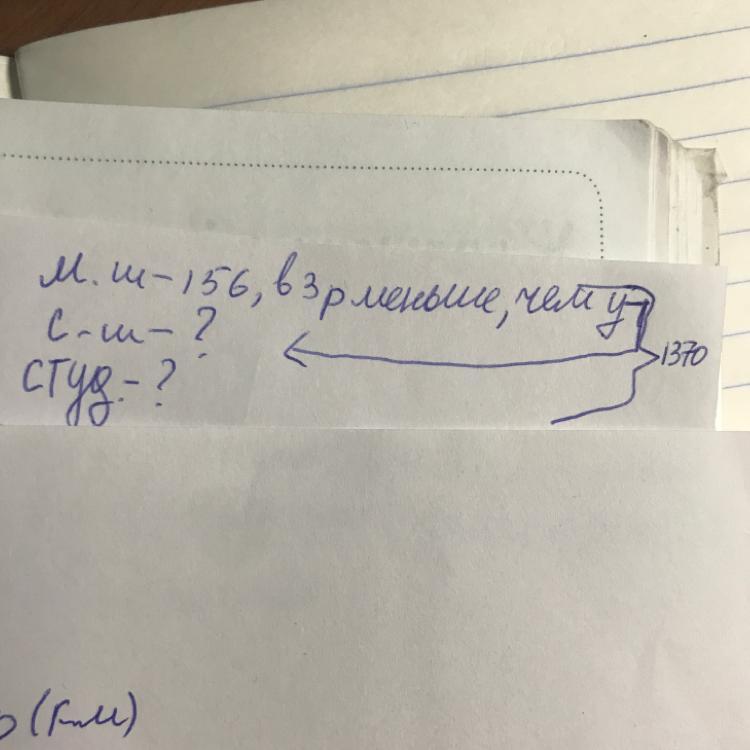 М. ш - 156, в 3 р меньше, чем у
С - ш - ?
1370
СТУД. - ?